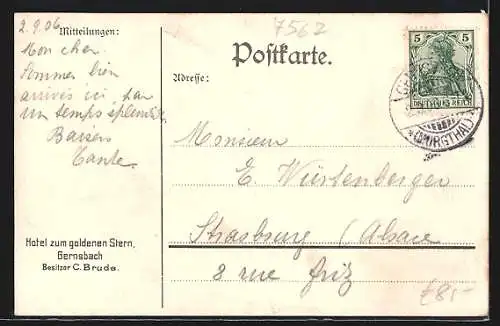 2.9.06
Mitteilungen:
Mon cher
Sommes bien
arrivés ici par
un temps splendide
Baisers
Tante.
Hotel zum goldenen Stern,
Gernsbach
Besitzer C. Brude.
7562
Postkarte.
Adresse:
Monsieur
E. Würtenberger
Strasburg (Alsace
8 rue
5 5
DEUTSCHES REICH
(MURGTHAL)
£8,-